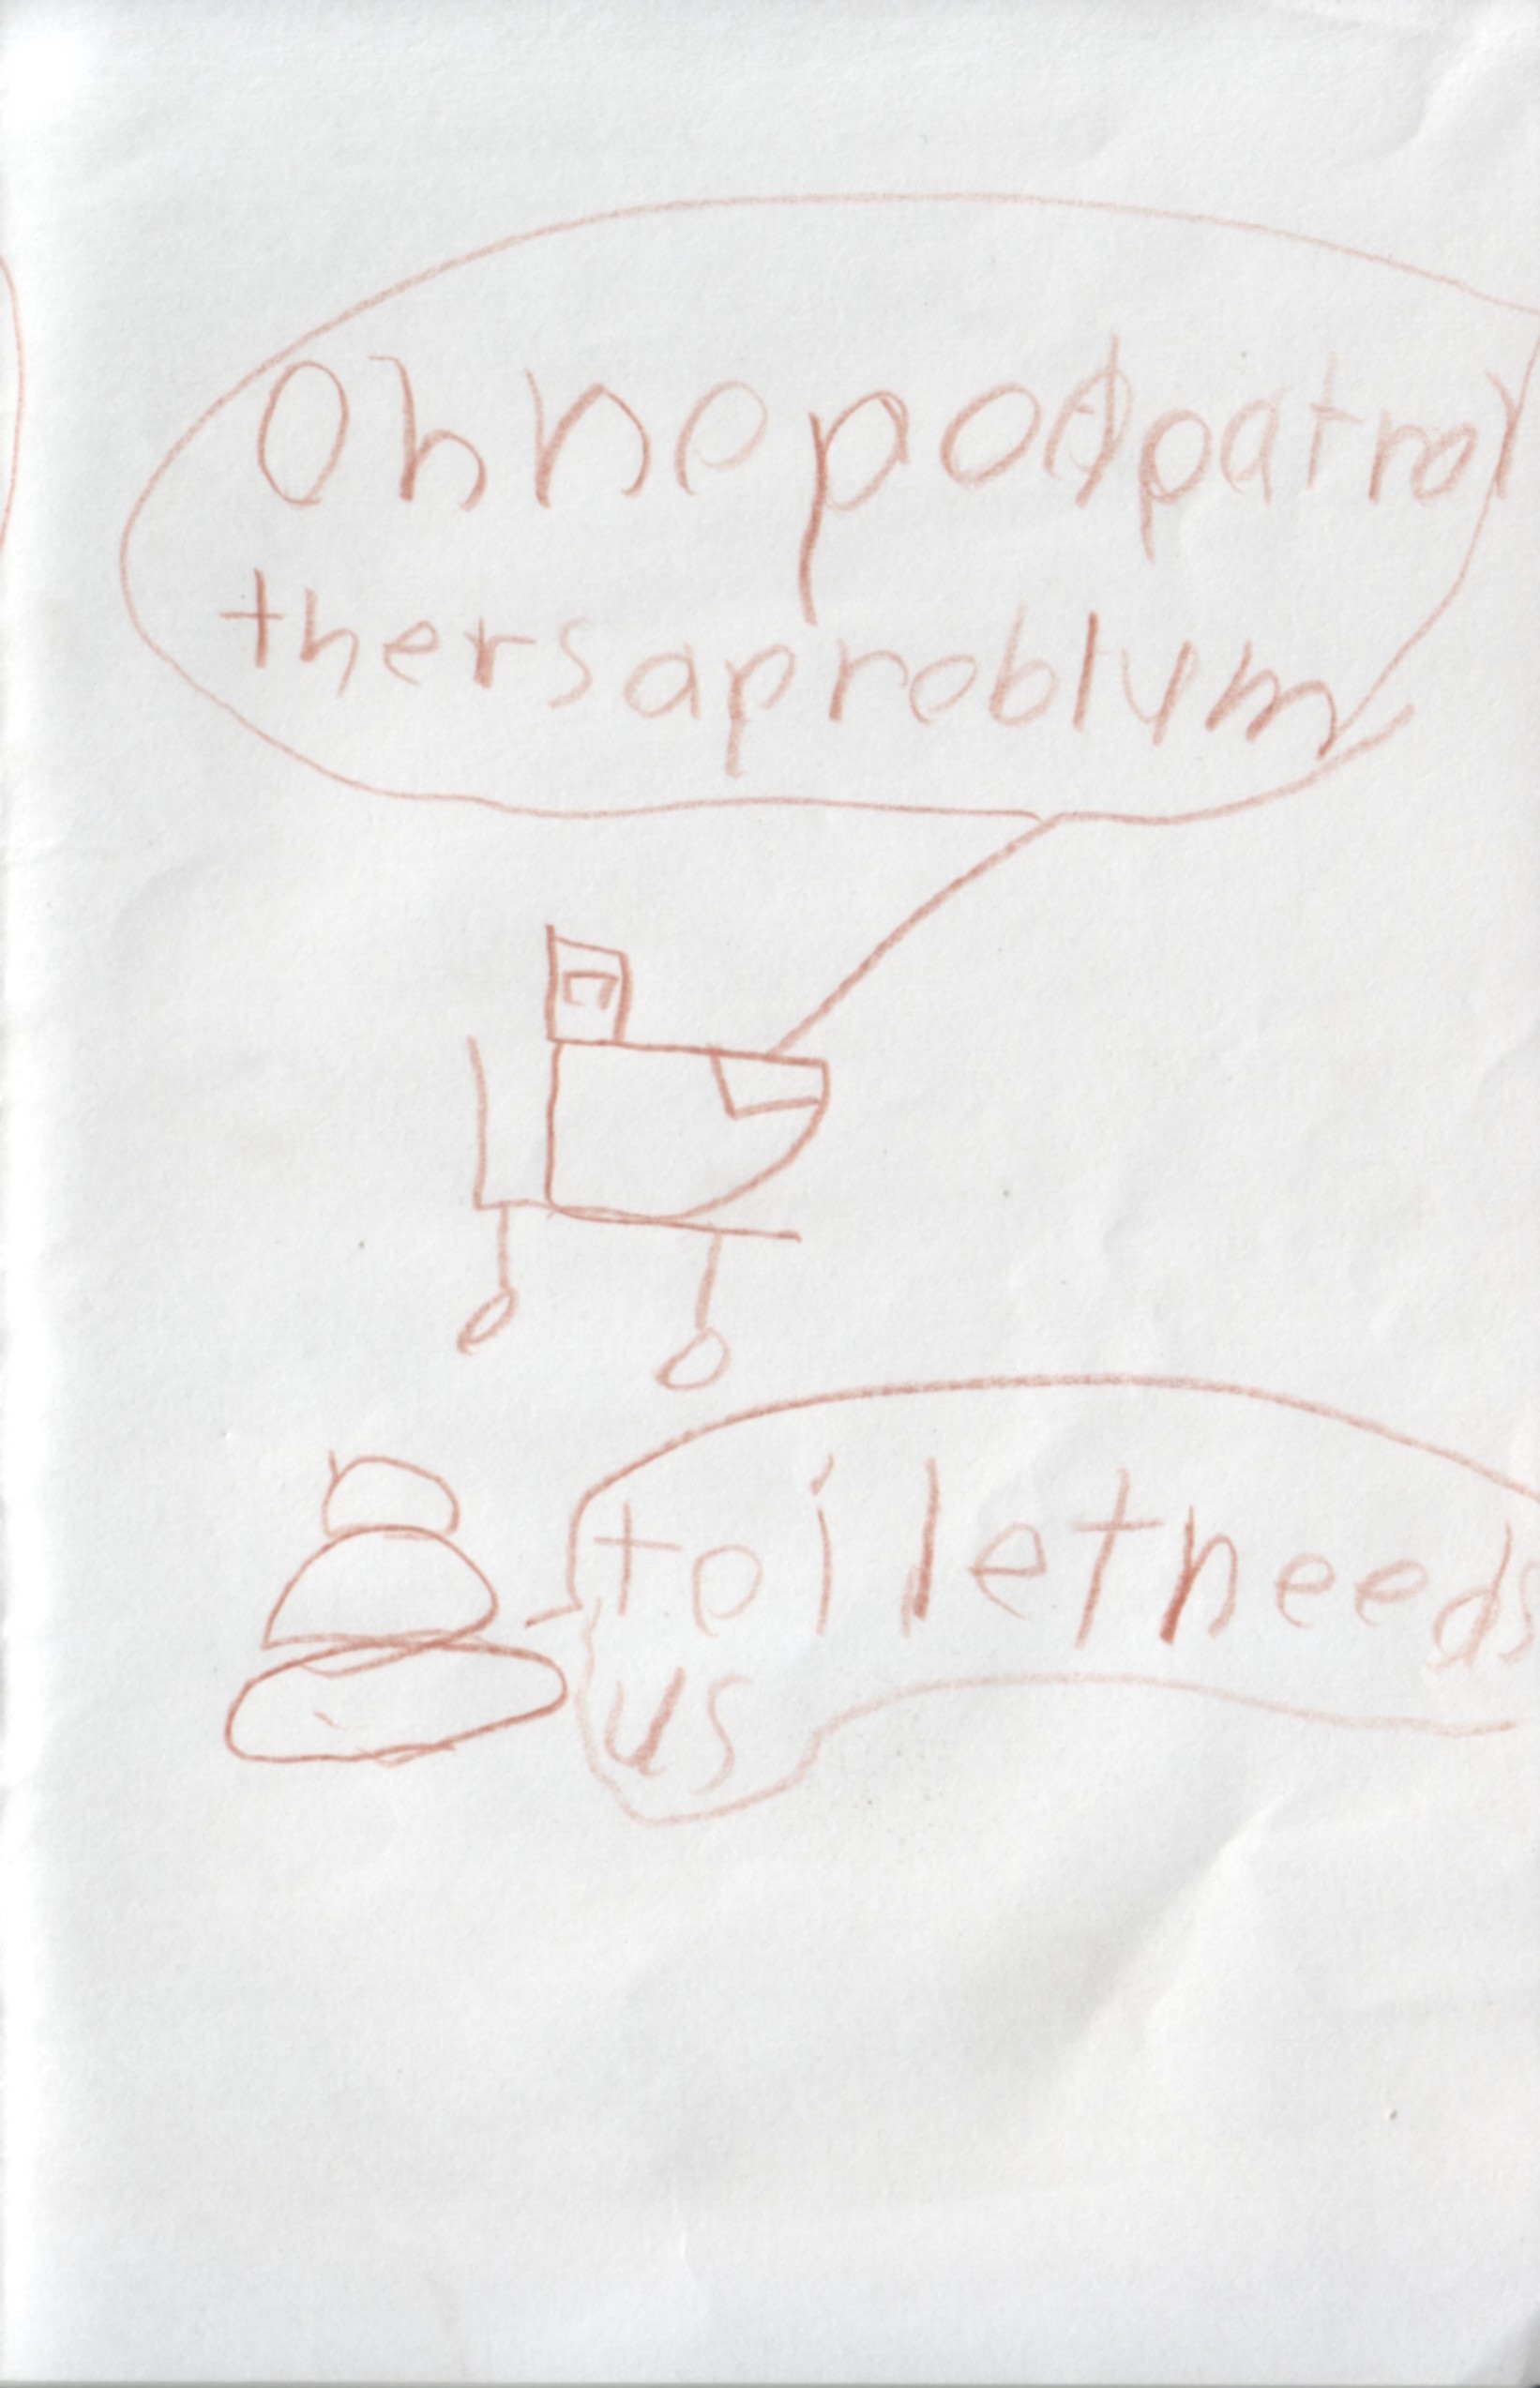 Oh no pod patrol
thers a problum
toilet needs
us